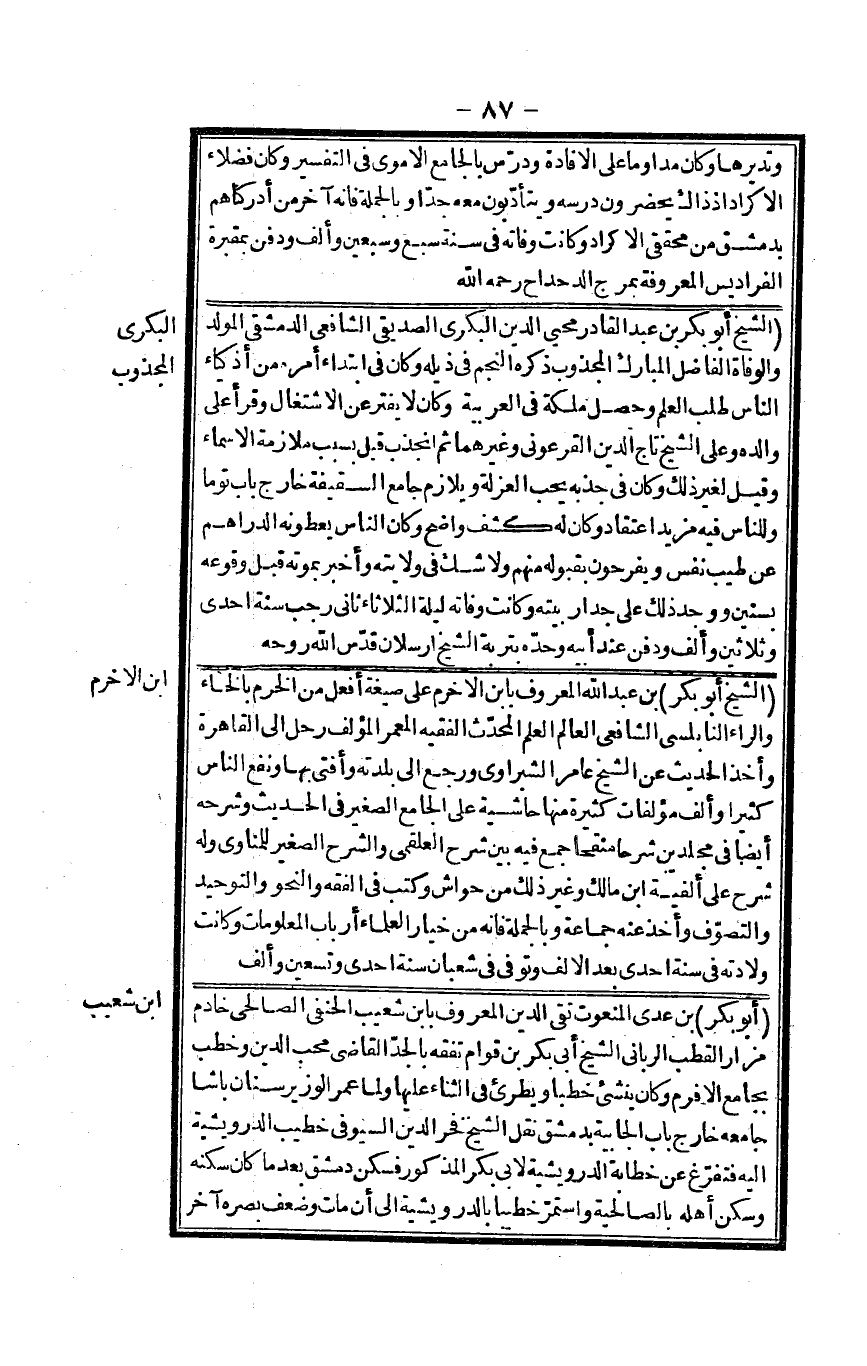 - ٨٧ -
وتدبرها وكان مداوما على الافادة ودرّس بالجامع الاموى فى التفسير وكان فضلاء
الاكراد اذ ذاك يحضرون درسه ويتأدّبون معه جدّا وبالجملة فانه آخر من أدركناهم
بدمشق من محققى الاكراد وكانت وفاته فى سنة سبع وسبعين وألف ودفن بمقبرة
الفراديس المعروفة بمرج الدحداح رحمه الله
البكرى المجذوب
(الشيخ أبو بكر بن عبد القادر محيى الدين البكرى الصديقى الشافعى الدمشقى المولد
والوفاة الفاضل المبارك المجذوب ذكره النجم فى ذيله وكان فى ابتداء أمره من أذكياء
الناس طلب العلم وحصل ملكة فى العربية وكان لا يفتر عن الاشتغال وقرأ على
والده وعلى الشيخ تاج الدين القرعونى وغيرهما ثم انجذب قيل بسبب ملازمة الاسماء
وقيل لغير ذلك وكان فى جذبه يحب العزلة ويلازم جامع السقيفة خارج باب توما
وللناس فيه مزيد اعتقاد وكان له كشف واضح وكان الناس يعطونه الدراهم
عن طيب نفس ويفرحون بقبوله منهم ولا شك فى ولايته وأخبر بموته قبل وقوعه
بسنين ووجد ذلك على جدار بيته وكانت وفاته ليلة الثلاثاء ثانى رجب سنة احدى
وثلاثين وألف ودفن عند أبيه وجدّه بتربة الشيخ ارسلان قدّس الله روحه
ابن الاخرم
(الشيخ أبو بكر) بن عبد الله المعروف بابن الاخرم على صيغة أفعل من الخرم بالخاء
والراء النابلسى الشافعى العالم العلم المحدّث الفقيه المعمر المؤلف رحل الى القاهرة
وأخذ الحديث عن الشيخ عامر الشبراوى ورجع الى بلدته وأفتى بها ونفع الناس
كثيرا وألف مؤلفات كثيرة منها حاشية على الجامع الصغير فى الحديث وشرحه
أيضا فى مجلدين شرحا منقحا جمع فيه بين شرح العلقمى والشرح الصغير للمناوى وله
شرح على ألفية ابن مالك وغير ذلك من حواش وكتب فى الفقه والنحو والتوحيد
والتصوّف وأخذ عنه جماعة وبالجملة فانه من خيار العلماء أرباب المعلومات وكانت
ولادته فى سنة احدى بعد الالف وتوفى فى شعبان سنة احدى وتسعين وألف
ابن شعيب
(أبو بكر) بن عدى المنعوت تقى الدين المعروف بابن شعيب الحنفى الصالحى خادم
مزار القطب الربانى الشيخ أبى بكر بن قوام تفقه بالجدّ القاضى محب الدين وخطب
بجامع الافرم وكان ينشئ خطبا ويطرئ فى الثناء عليها ولما عمر الوزير سنان باشا
جامعه خارج باب الجابية بدمشق نقل الشيخ فخر الدين السيوفى خطيب الدرويشية
اليه فتفرّغ عن خطابة الدرويشية لابى بكر المذكور فسكن دمشق بعد ما كان سكنه
وسكن أهله بالصالحية واستمرّ خطيبا بالدرويشية الى أن مات وضعف بصره آخر